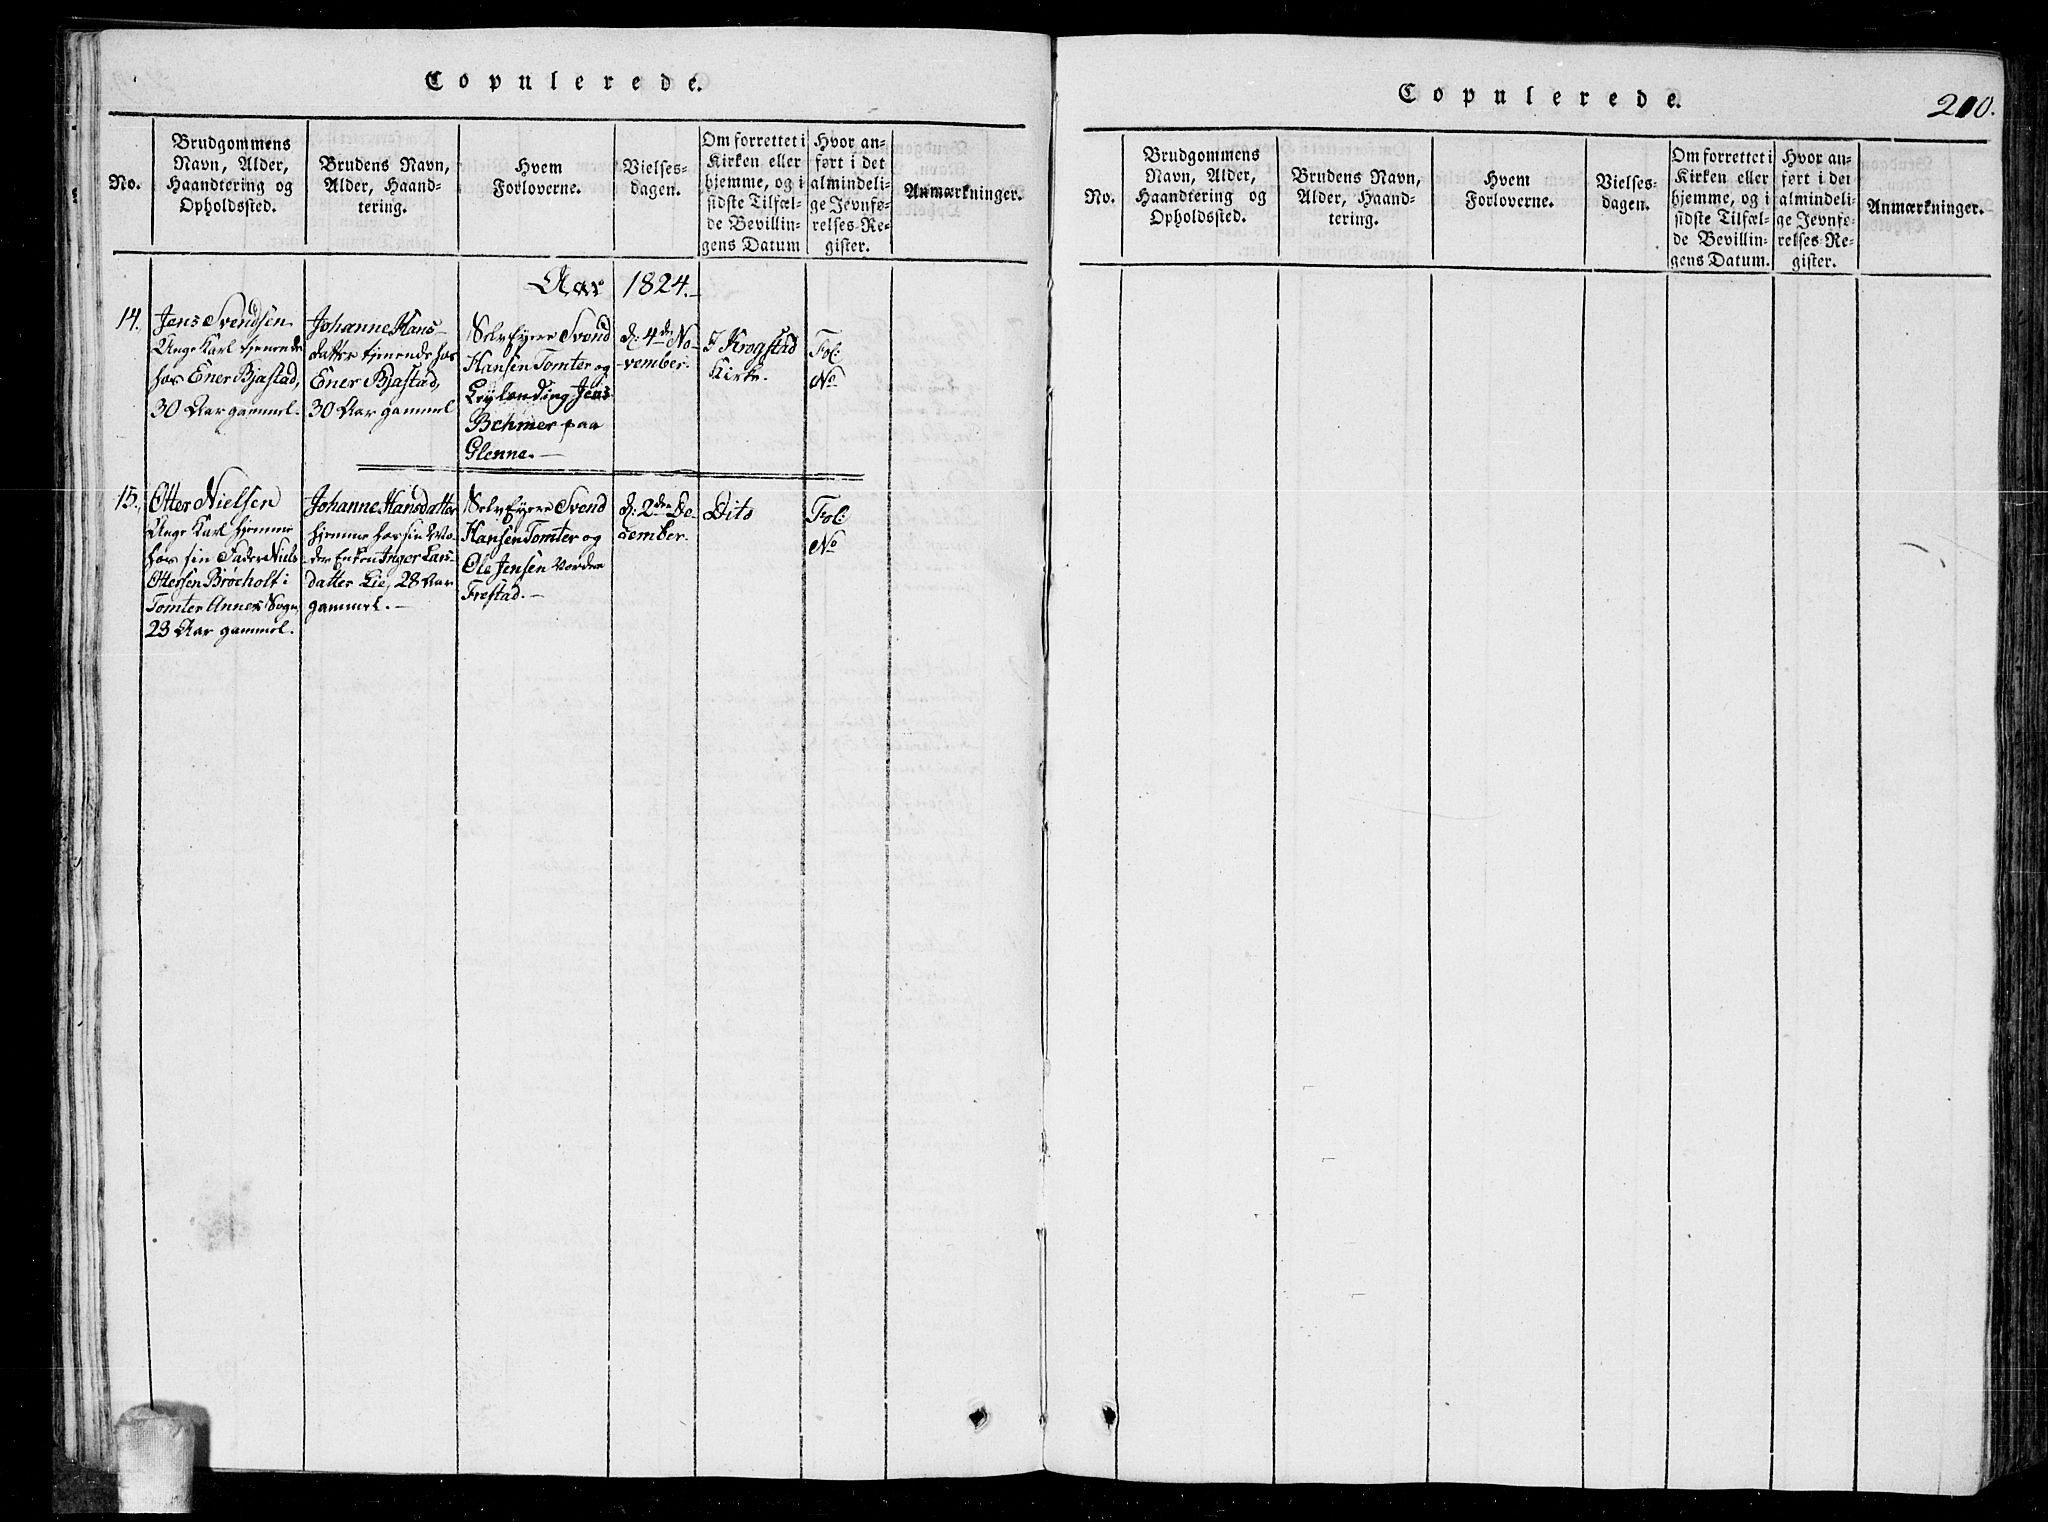 Copulerede.
No.
Brudgommens
Navn, Alder,
Haandtering og
Opholdssted.
Brudens Navn,
Alder, Haand-
tering.
Hvem
Forloverne.
Vielses-
dagen.
Om forrettet i
Kirken eller
hjemme, og i
sidste Tilfæl-
de Bevillin-
gens Datum
Hvor an-
ført i det
almindeli-
ge Jevnfø-
relses-Re-
gister.
Anmærkninger.
Aar 1824.
14.
Jens Svendsen
Unge Karl tjenende
hos Ener Bjastad,
30 Aar gammel.
Johanne Hans-
datter tjenende hos
Ener Bjastad,
30 Aar gammel
SelvEyere Svend
Hansen Tomter og
Leylænding Jens
Bchmer paa
Glenne.
d: 4de No-
vember.
I Krogstad
Kirke.
Fol:
No
15.
Otter Nielsen
Unge Karl hjemme
hos sin Fader Niels
Ottersen Brocholt i
Tomter Annex Sogn,
23 Aar gammel.
Johanne Hansdatter
hjemme hos sin Mo-
der Enken Inger Lars-
datter Lie, 28 Aar
gammel.
SelvEyere Svend
Hansen Tomter og
Ole Jensen Nordre
Frestad.
d: 2den De-
cember.
Dito
Fol:
No
Copulerede.
210.
No.
Brudgommens
Navn, Alder,
Haandtering og
Opholdssted.
Brudens Navn,
Alder, Haand-
tering.
Hvem
Forloverne.
Vielses-
dagen.
Om forrettet i
Kirken eller
hjemme, og i
sidste Tilfæl-
de Bevillin-
gens Datum.
Hvor an-
ført i det
almindeli-
ge Jevnfø-
relses-Re-
gister.
Anmærkninger.